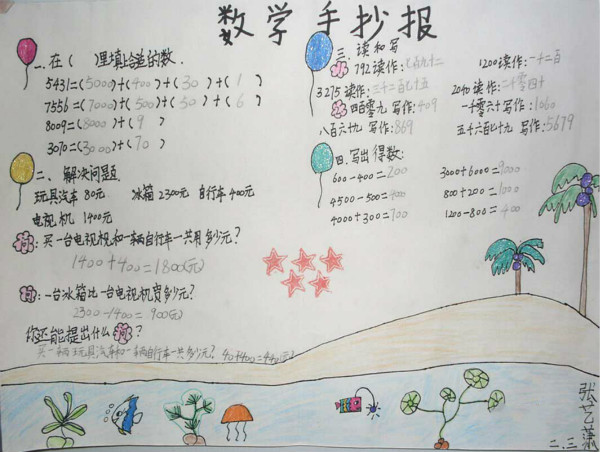 数学手抄报
一.在(   )里填上合适的数.
5431=(5000)+(400)+(30)+(1)
7556=(7000)+(500)+(50)+(6)
8009=(8000)+(9)
3070=(3000)+(70)
二、解决问题.
玩具汽车 80元 冰箱 2300元 自行车 400元
电视机 1400元
问:买一台电视机和一辆自行车一共用多少元?
1400+400=1800(元)
问:一台冰箱比一台电视机贵多少元?
2300-1400=900(元)
你还能提出什么问?
买一辆玩具汽车和一辆自行车一共多少元?
三 读和写
792读作:七百九十二 1200读作:一千二百
3275读作:三千二百七十五 2040读作:二千零四十
四百零九 写作:409 一千零六十 写作:1060
八百六十九 写作:869 五千六百七十九 写作:5679
四.写出得数:
600-400=200 3000+6000=9000
4500-500= 800+200=1000
4000+300=700 1200-800=400
张艺潇
二.三